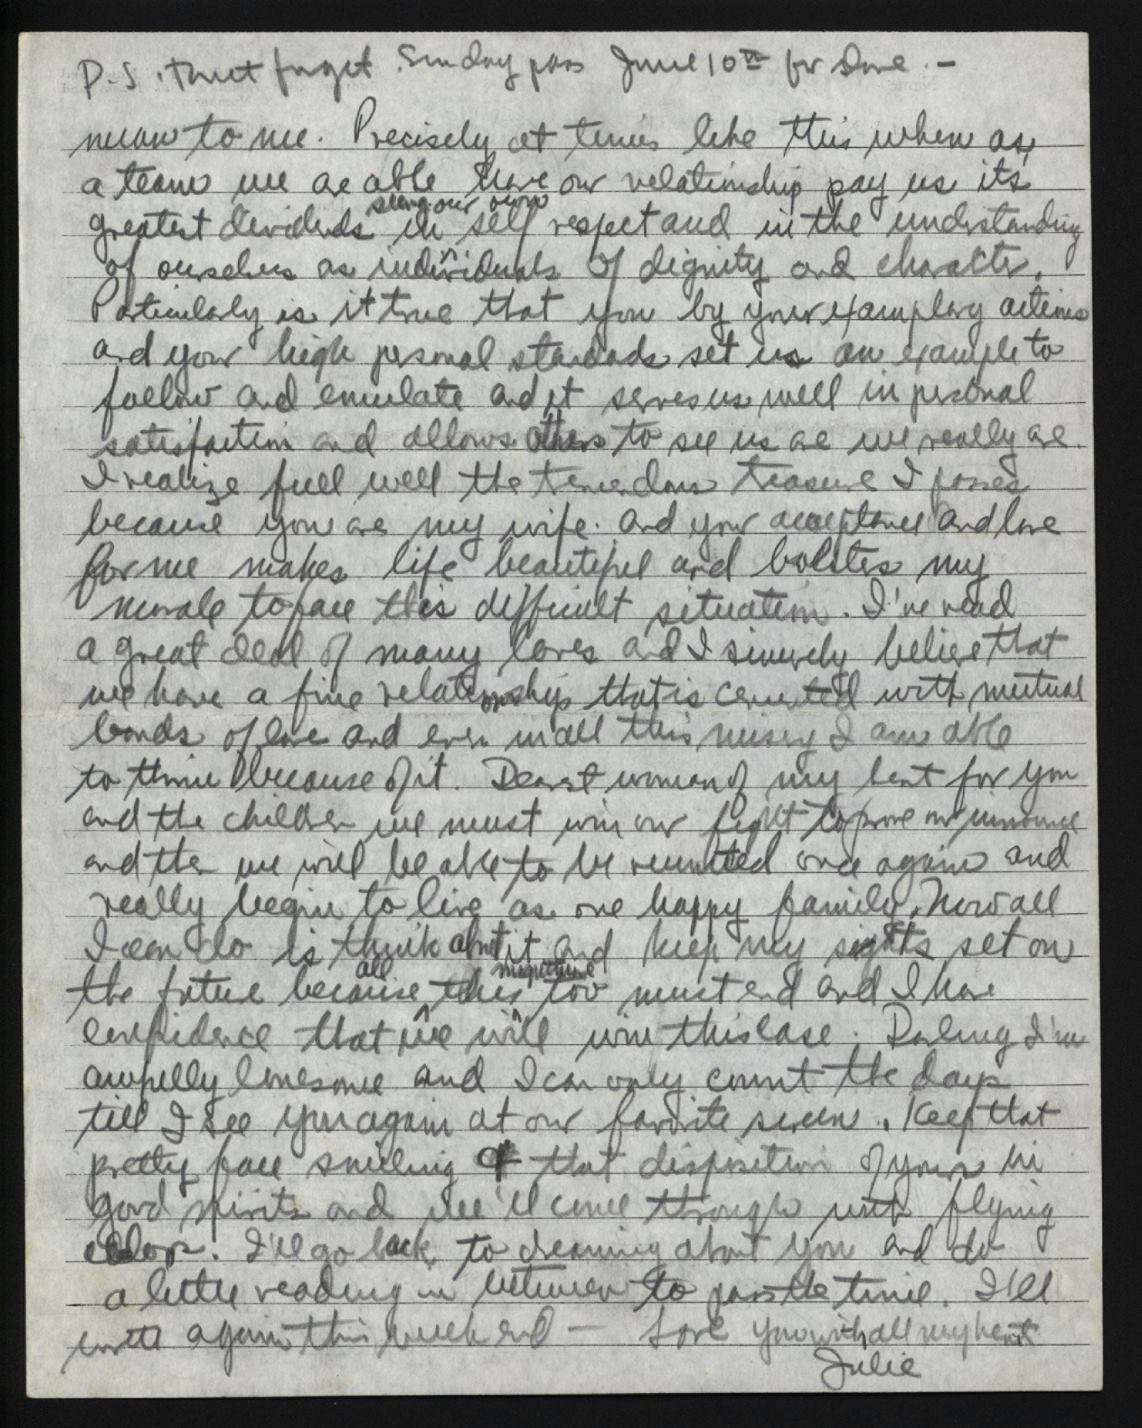 P.S. Don't forget Sunday pass June 10th for Dave. —
mean to me. Precisely at times like this when as
a team we are able have our relationship pay us its
seeing our own
greatest dividends in self respect and in the understanding
of ourselves as individuals of dignity and character.
Particularly is it true that you by your examplary actions
and your high personal standards set us an example to
follow and emulate and it serves us well in personal
satisfaction and allows others to see us as we really are.
I realize full well the tremendous treasure I posses
because you are my wife. And your acceptance and love
for me makes life beautiful and bolsters my
morale to face this difficult situation. I've read
a great deal of many loves and I sincerely believe that
we have a fine relationship that is cemented with mutual
bonds of love and even in all this misery I am able
to thrive because of it. Dearest woman of my heart for you
and the children we must win our fight to prove our innocence
and then we will be able to be reunited once again and
really begin to live as one happy family. Now all
I can do is think about it and keep my sights set on
all
the future because this too must end and I have
confidence that we will win this case. Darling I'm
awfully lonesome and I can only count the days
till I see you again at our favorite screen. Keep that
pretty face smiling & that disposition of yours in
good spirits and we'll come through with flying
colors. I'll go back to dreaming about you and do
a little reading in between to pass the time. I'll
write again this week end — Love you with all my heart
Julie